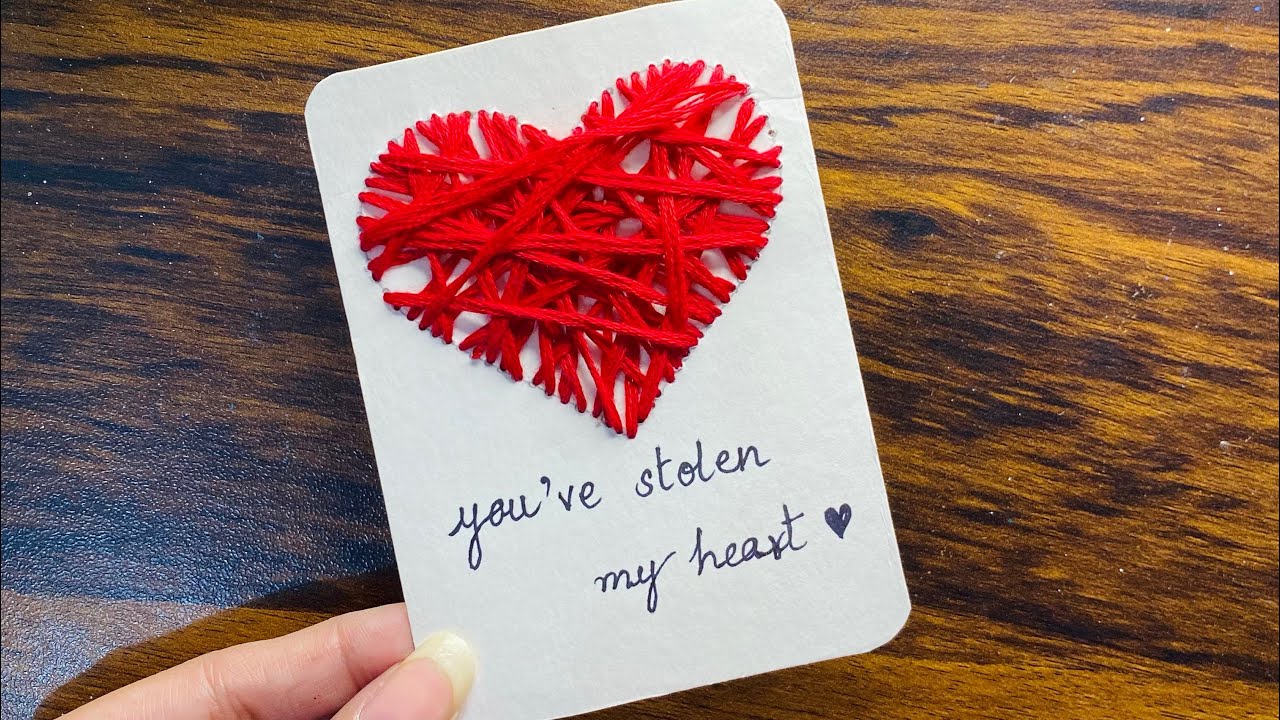 you've stolen
my heart ♥